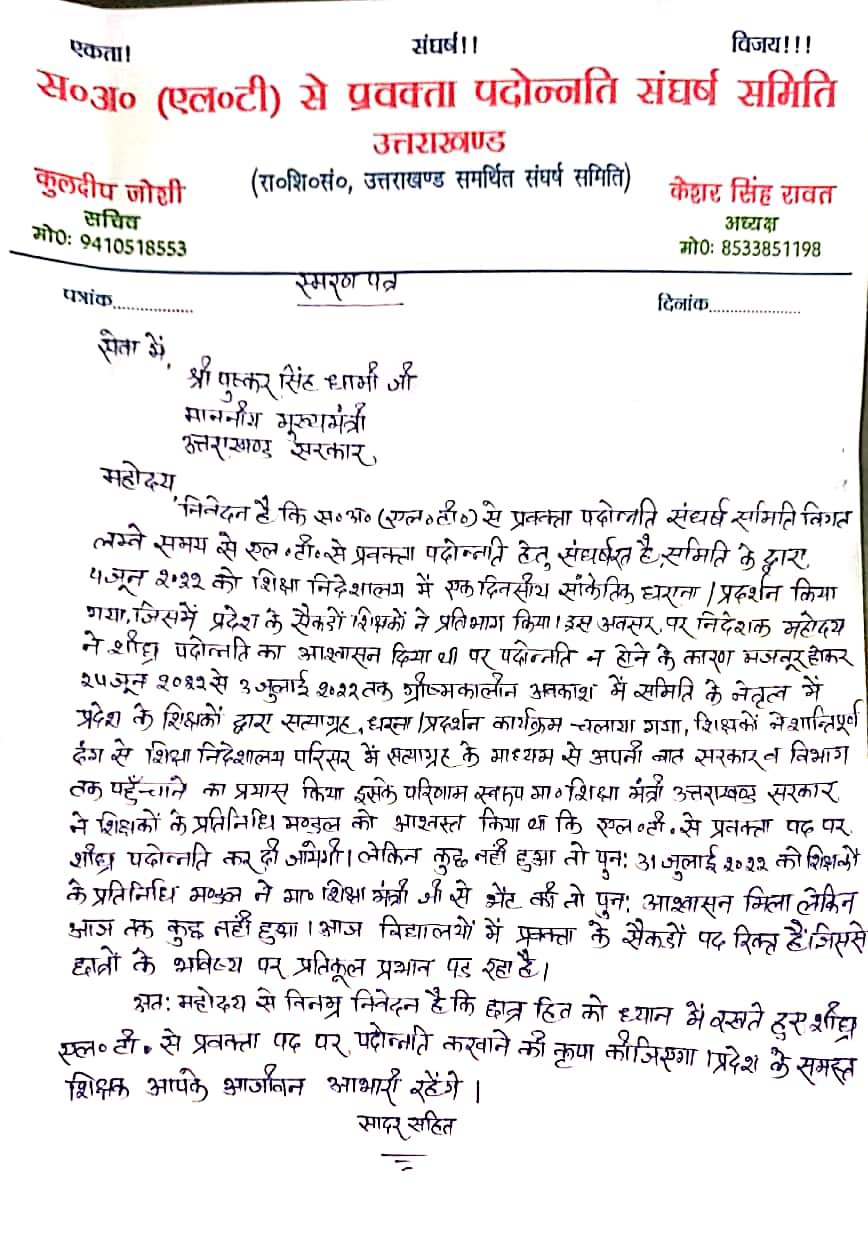 एकता! संघर्ष!! विजय!!!
स०अ० (एल०टी) से प्रवक्ता पदोन्नति संघर्ष समिति
उत्तराखण्ड
(रा०शि०सं०, उत्तराखण्ड समर्थित संघर्ष समिति)
कुलदीप जोशी
सचिव
मो0: 9410518553
केशर सिंह रावत
अध्यक्ष
मो0: 8533851198
स्मरण पत्र
पत्रांक................ दिनांक....................
सेवा में,
श्री पुष्कर सिंह धामी जी
माननीय मुख्यमंत्री
उत्तराखण्ड सरकार,
महोदय,
निवेदन है कि स०अ० (एल०टी०) से प्रवक्ता पदोन्नति संघर्ष समिति विगत
लम्बे समय से एल०टी० से प्रवक्ता पदोन्नति हेतु संघर्षरत है, समिति के द्वारा
५ जून २०२२ को शिक्षा निदेशालय में एक दिवसीय सांकेतिक धराना/प्रदर्शन किया
गया, जिसमें प्रदेश के सैकडों शिक्षकों ने प्रतिभाग किया। इस अवसर पर निदेशक महोदय
ने शीघ्र पदोन्नति का आश्वासन दिया था पर पदोन्नति न होने के कारण मजबूर होकर
२५ जून २०२२ से ३ जुलाई २०२२ तक ग्रीष्मकालीन अवकाश में समिति के नेतृत्व में
प्रदेश के शिक्षकों द्वारा सत्याग्रह, धरना/प्रदर्शन कार्यक्रम चलाया गया, शिक्षकों ने शान्तिपूर्ण
ढंग से शिक्षा निदेशालय परिसर में सत्याग्रह के माध्यम से अपनी बात सरकार व विभाग
तक पहुँचाने का प्रयास किया इसके परिणाम स्वरूप मा० शिक्षा मंत्री उत्तराखण्ड सरकार
ने शिक्षकों के प्रतिनिधि मण्डल को आश्वस्त किया था कि एल०टी. से प्रवक्ता पद पर
शीघ्र पदोन्नति कर दी जायेगी। लेकिन कुछ नही हुआ तो पुन: ३१ जुलाई २०२२ को शिक्षकों
के प्रतिनिधि मण्डल ने मा० शिक्षा मंत्री जी से भेंट की तो पुन: आश्वासन मिला लेकिन
आज तक कुछ नही हुआ। आज विद्यालयों में प्रवक्ता के सैकडों पद रिक्त हैं, जिससे
छात्रों के भविष्य पर प्रतिकूल प्रभाव पड रहा है।
अत: महोदय से विनम्र निवेदन है कि छात्र हित को ध्यान में रखते हुए शीघ्र
एल०टी. से प्रवक्ता पद पर पदोन्नति करवाने की कृपा कीजिएगा। प्रदेश के समस्त
शिक्षक आपके आजीवन आभारी रहेंगे।
सादर सहित